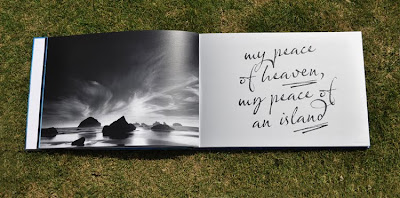 my peace
of heaven,
my peace of
an island